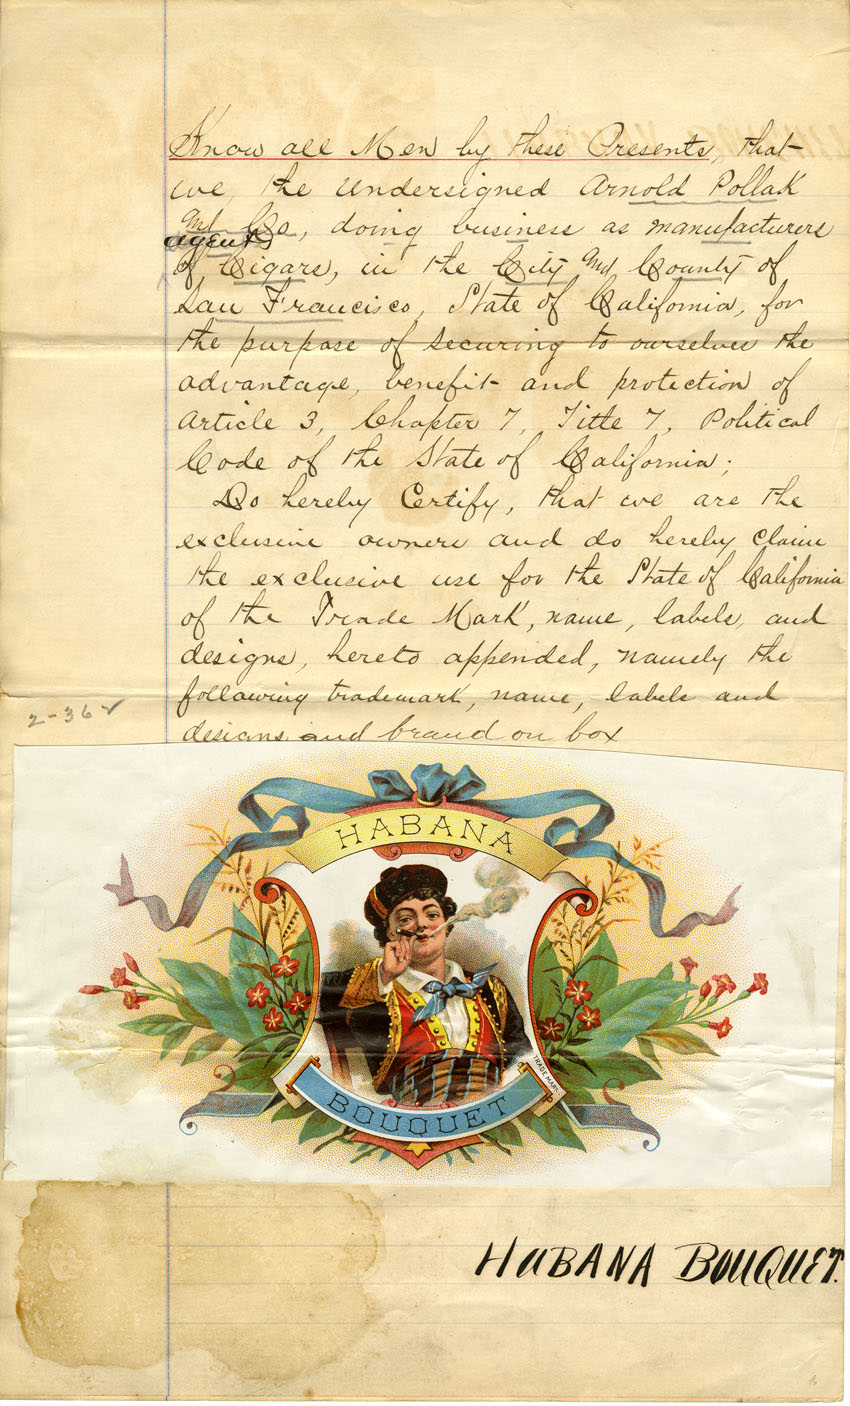 Know all Men by these Presents, that
we, the undersigned Arnold Pollak
and Co, doing business as manufacturers
agents
of Cigars, in the City and County of
San Francisco, State of California, for
the purpose of securing to ourselves the
advantage, benefit and protection of
Article 3, Chapter 7, Title 7, Political
Code of the State of California;
Do hereby Certify, that we are the
exclusive owners and do hereby claim
the exclusive use for the State of California
of the Trade Mark, name, labels, and
designs, hereto appended, namely the
following trademark, name, labels and
designs and brand on box
2-36 ✓
HABANA
TRADE MARK.
BOUQUET
HABANA BOUQUET.